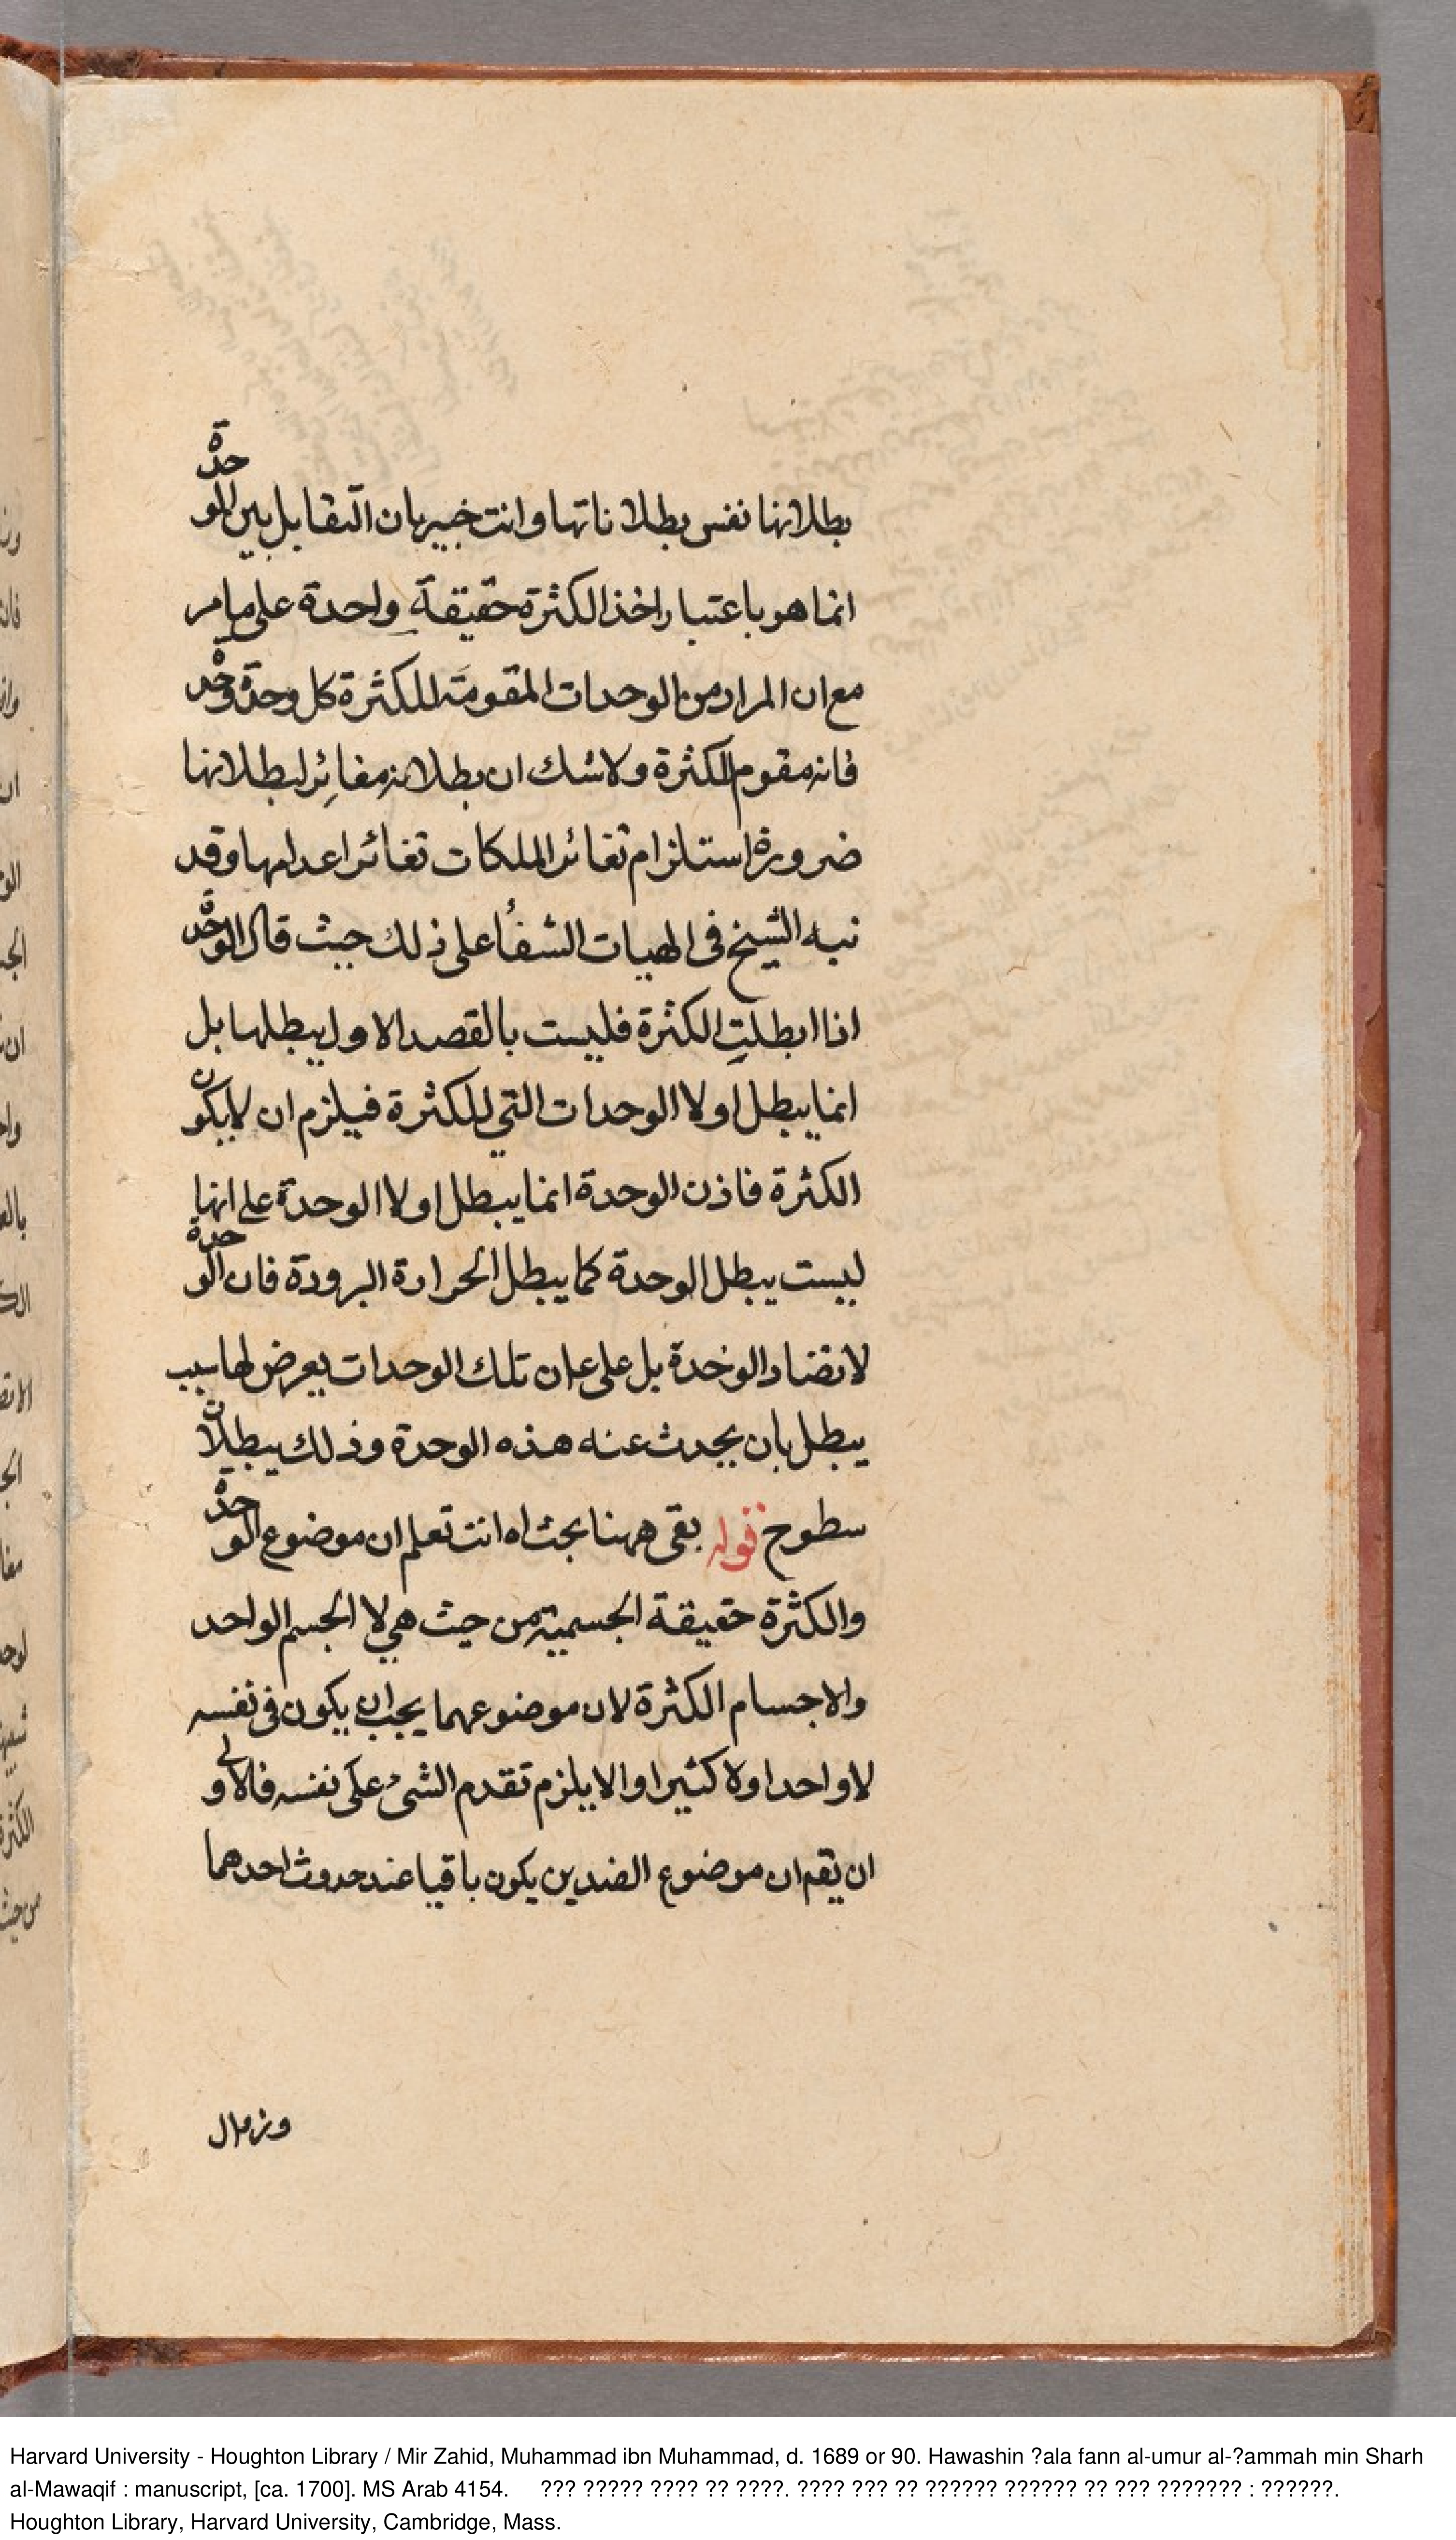 بطلانها نفس بطلاناتها وانت خبير بان التقابل بين الوحدة
انما هو باعتبار اخذ الكثرة حقيقة واحدة على مامر
مع ان المراد من الوحدات المقومة للكثرة كل وحدة وحدة
فانه مقوم للكثرة ولا شك ان بطلانه مغائر لبطلانها
ضرورة استلزام تغائر الملكات تغائر اعدامها وقد
نبه الشيخ فى الهيات الشفاء على ذلك حيث قال الوحدة
اذا ابطلت الكثرة فليست بالقصد الاول يبطلها بل
انما يبطل اولا الوحدات التي للكثرة فيلزم ان لا يكون
الكثرة فاذن الوحدة انما يبطل اولا الوحدة على انها
ليست يبطل الوحدة كما يبطل الحرارة البرودة فان الوحدة
لا تضاد الوحدة بل على ان تلك الوحدات يعرض لها سبب
يبطل بان يحدث عنه هذه الوحدة وذلك يبطلان
سطوح قوله بقى ههنا بحث اه انت تعلم ان موضوع الوحدة
والكثرة حقيقة الجسمية من حيث هي لا الجسم الواحد
والاجسام الكثرة لان موضوعهما يجب ان يكون فى نفسه
لا واحدا ولا كثيرا والا يلزم تقدم الشئ على نفسه فالاولى
ان يقم ان موضوع الضدين يكون باقيا عند حدوث احدهما
وزوال
Harvard University - Houghton Library / Mir Zahid, Muhammad ibn Muhammad, d. 1689 or 90. Hawashin ?ala fann al-umur al-?ammah min Sharh
al-Mawaqif : manuscript, [ca. 1700]. MS Arab 4154. ??? ????? ???? ?? ????. ???? ??? ?? ?????? ?????? ?? ??? ??????? : ??????.
Houghton Library, Harvard University, Cambridge, Mass.